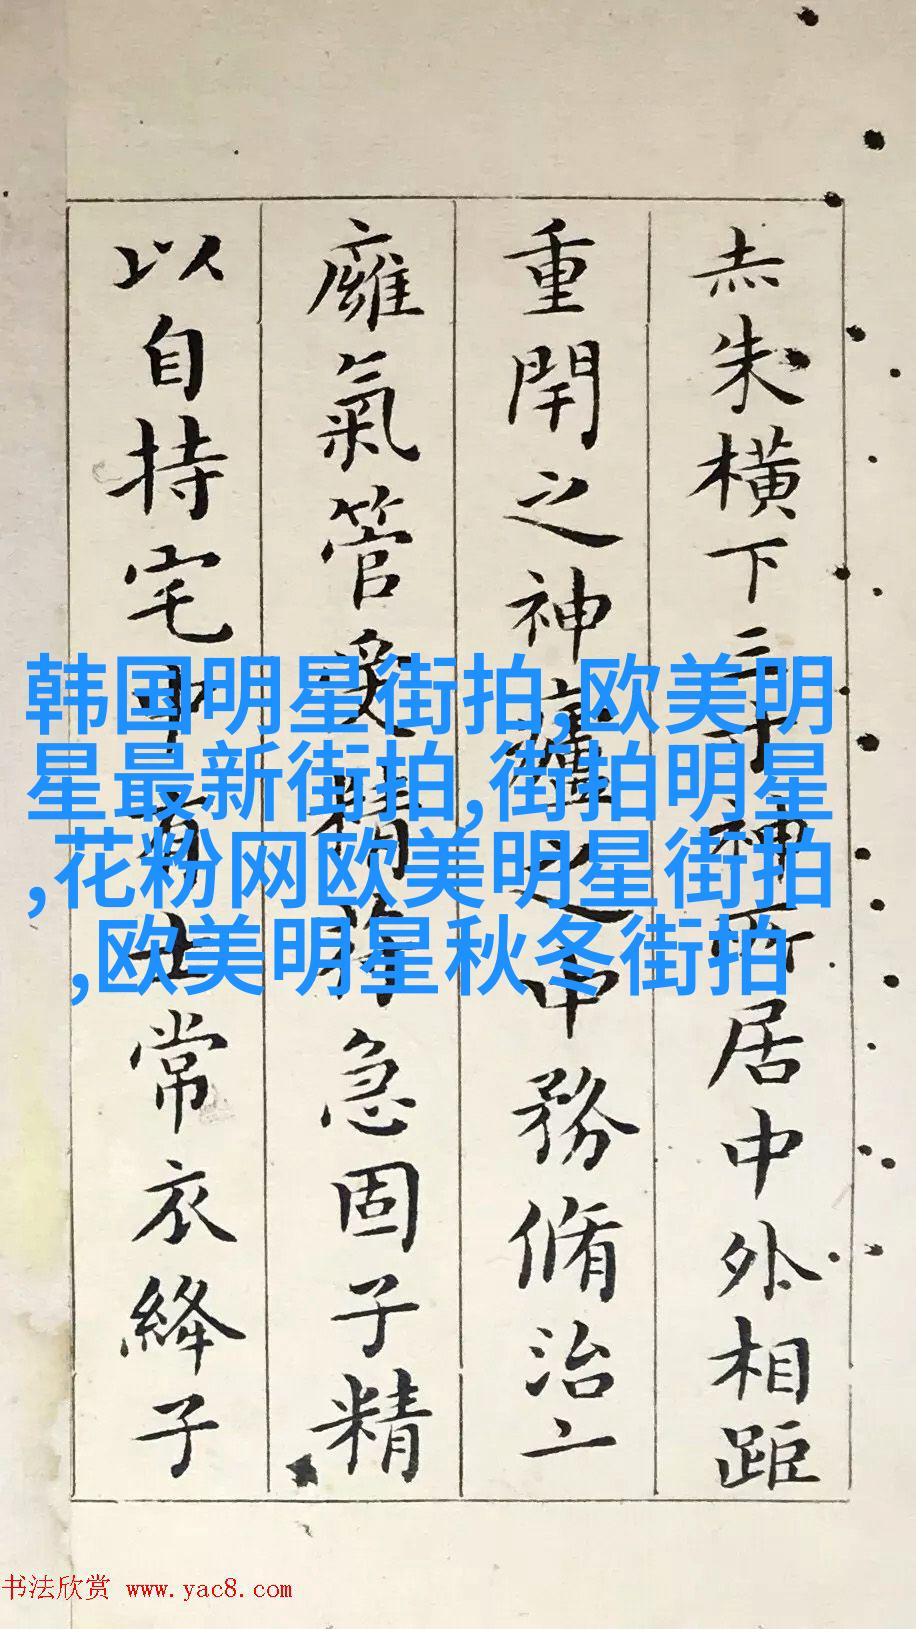 赤朱橫下三寸神所居中外相距
重閇之神廬之中務脩治亠
廱氣管受精符急固子精
以自持宅中有士常衣絳子
韩国明星街拍,欧美明
星最新街拍,街拍明星
,花粉网欧美明星街拍
,欧美明星秋冬街拍
书法欣赏 www.yac8.com